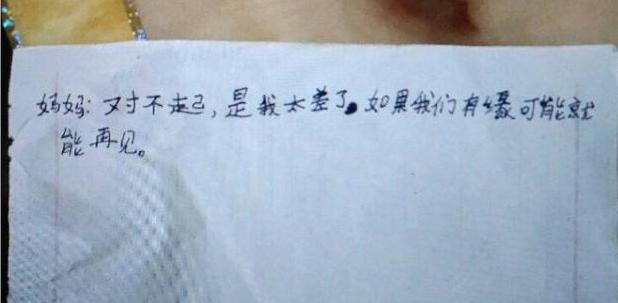 妈妈:对不起,是我太差了。如果我们有缘可能就
能再见。